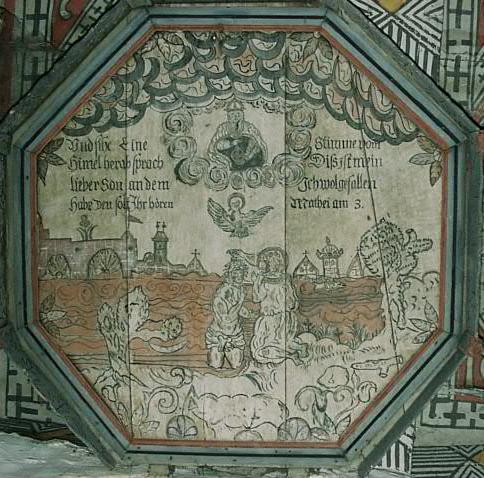 Und sihe Eine Stimme vom
Himel herab sprach Diß ist mein
lieber Son an dem Ich wolgefallen
Habe Den solt Ihr hören Mathei am 3.